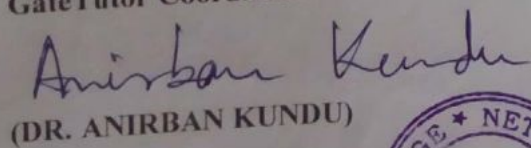 GateTutor Coordinator
Anirban Kundu
(DR. ANIRBAN KUNDU)
GE * NET